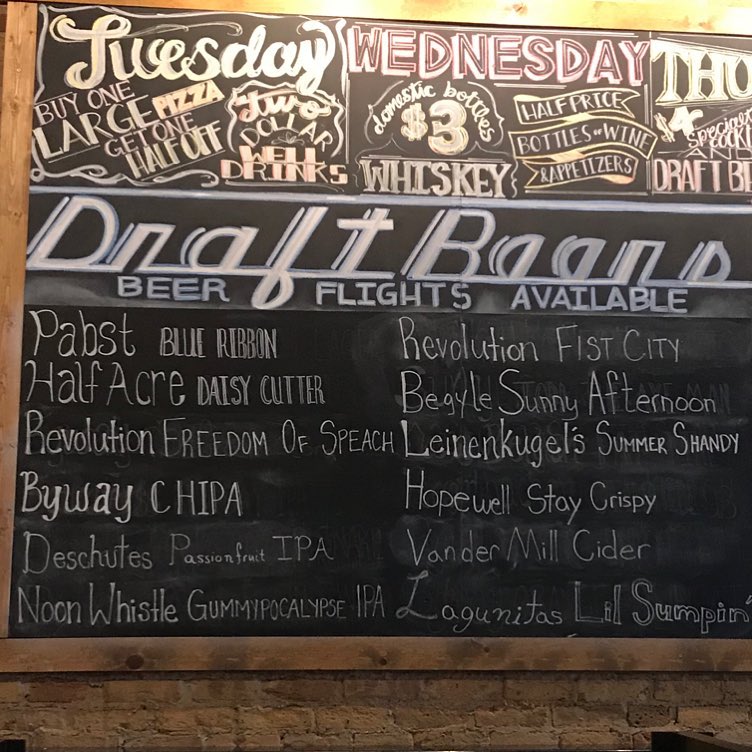 Tuesday
BUY ONE
LARGE PIZZA
GET ONE
HALF OFF
TWO
DOLLAR
WELL
DRINKS
WEDNESDAY
domestic bottles
$3
WHISKEY
HALF PRICE
BOTTLES OF WINE
& APPETIZERS
THU
$4
AND
DRAFT
Draft Beers
BEER FLIGHTS AVAILABLE
Pabst BLUE RIBBON
Half Acre DAISY CUTTER
Revolution FREEDOM OF SPEACH
Byway CHIPA
Deschutes Passionfruit IPA
Noon Whistle GUMMYPOCALYPSE IPA
Revolution FIST CITY
Begyle Sunny Afternoon
Leinenkugel's SUMMER SHANDY
Hopewell Stay Crispy
Vander Mill Cider
Lagunitas Lil Sumpin'